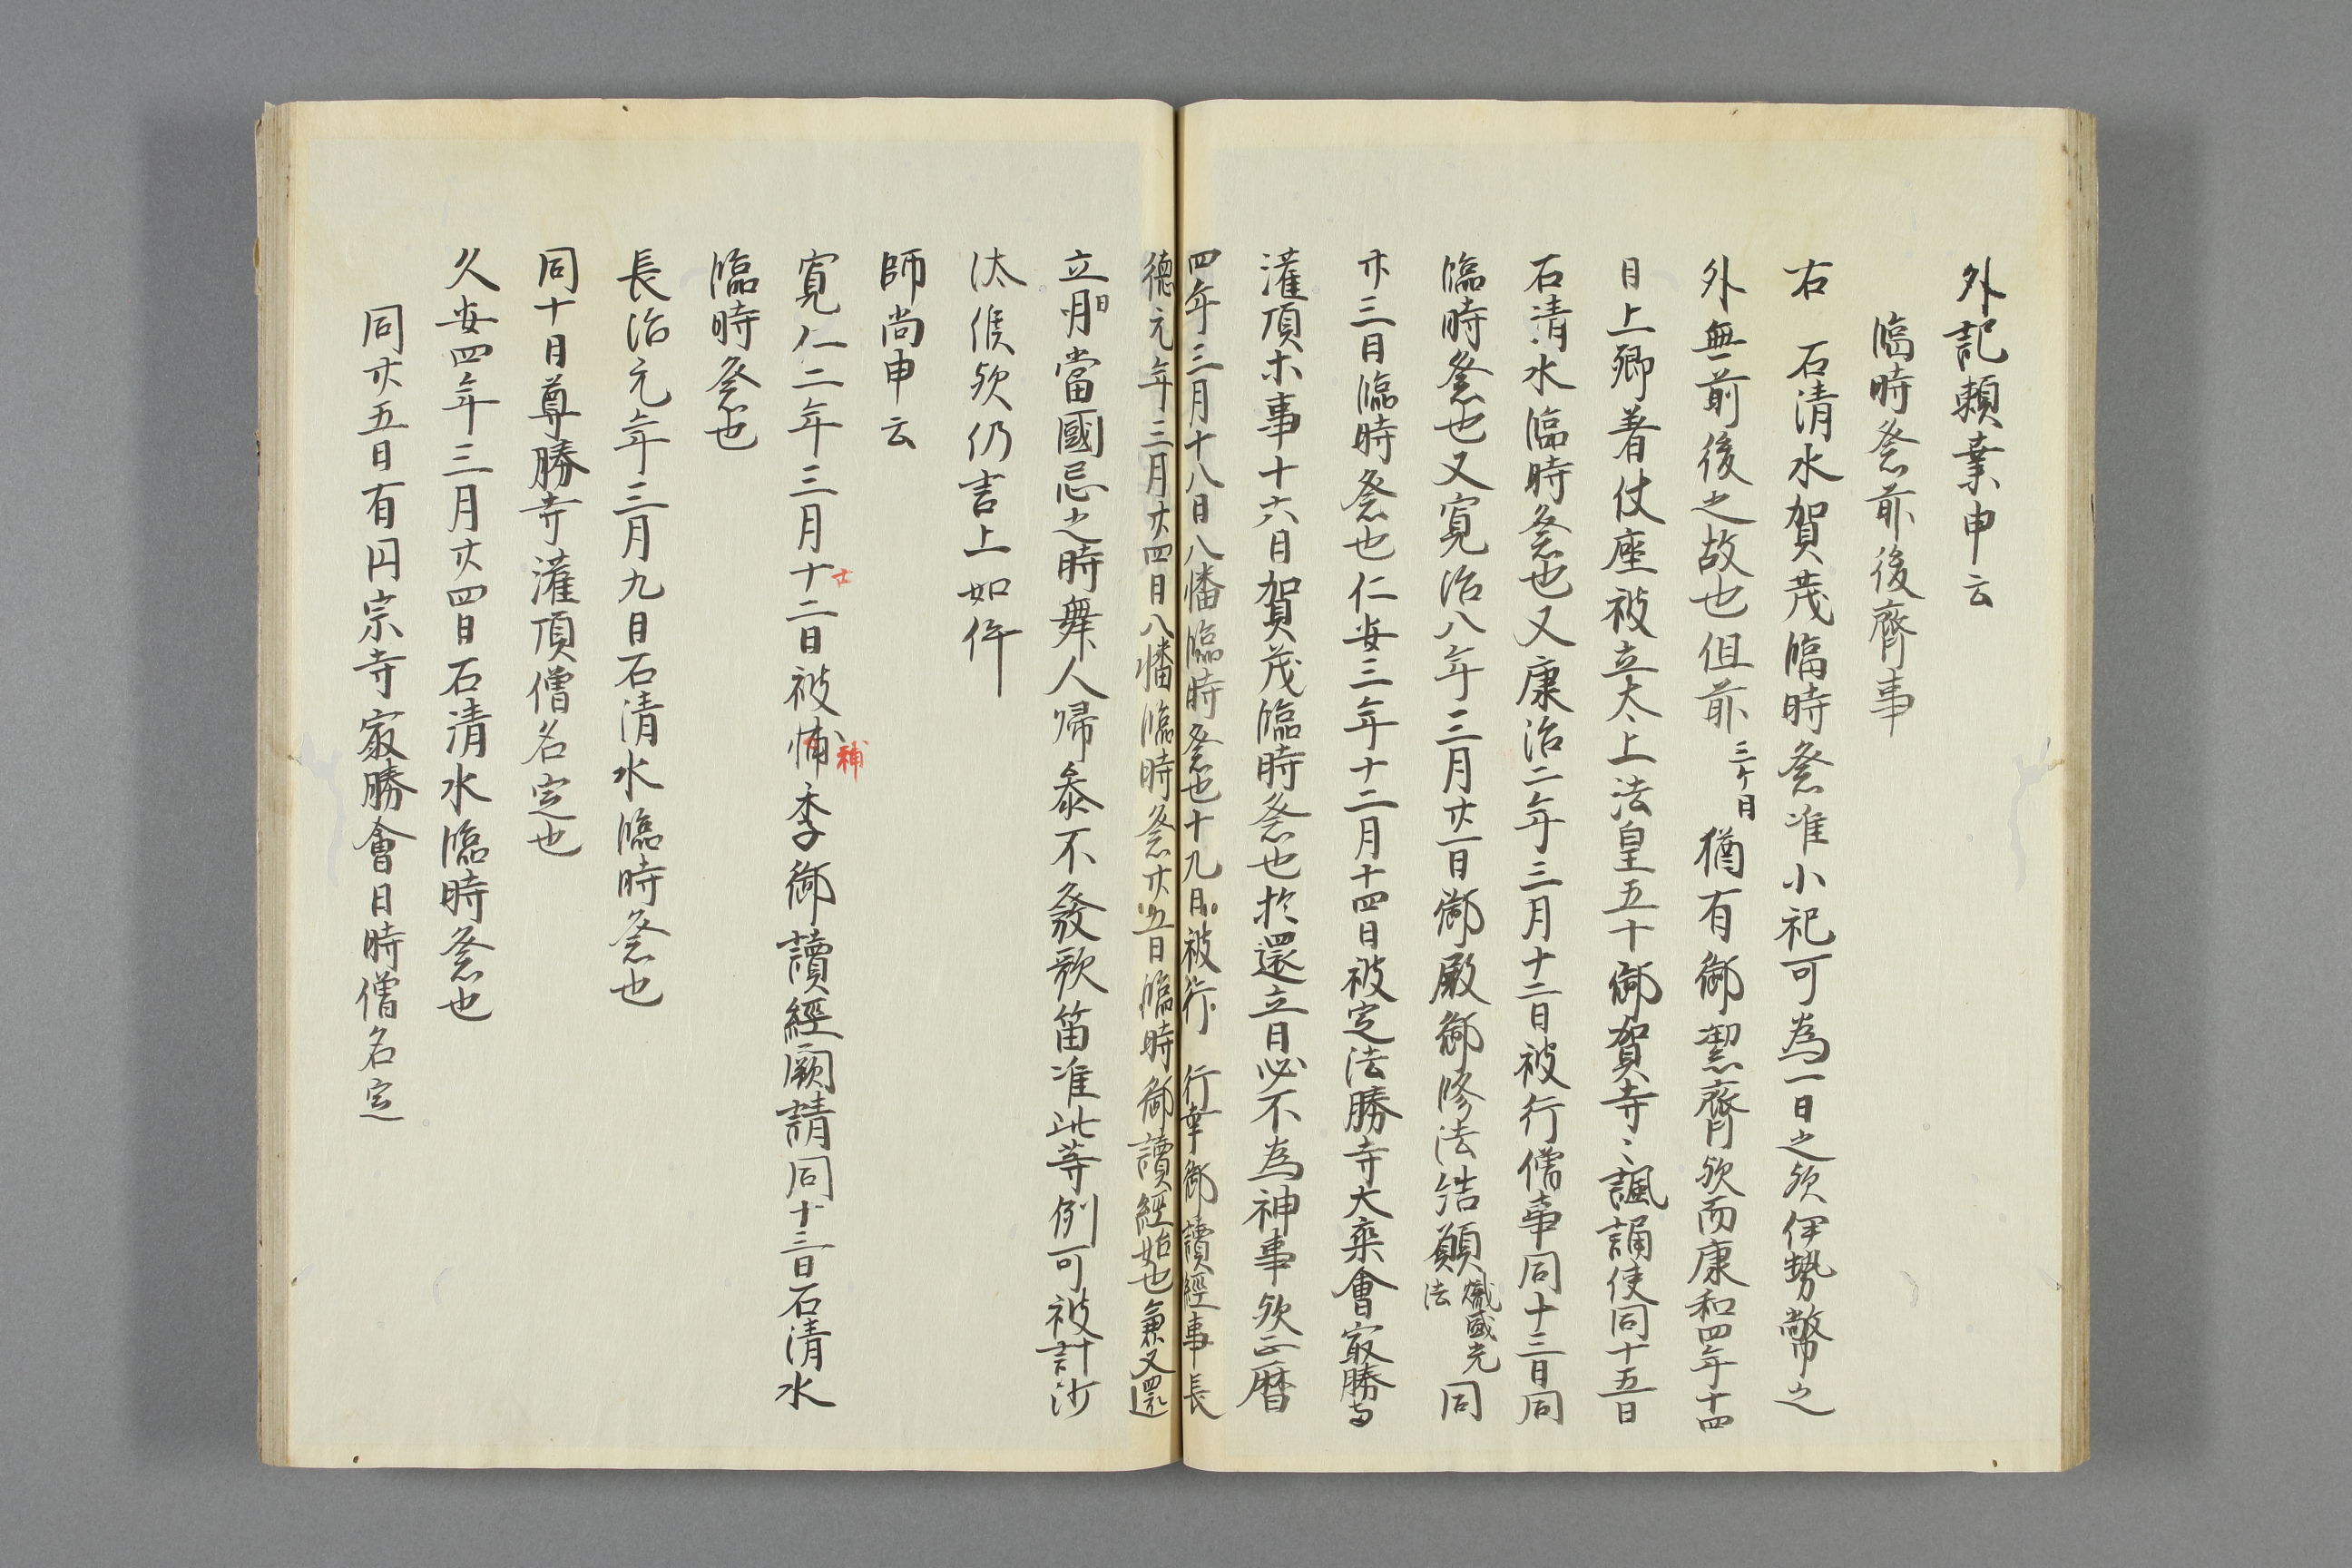 外記頼業申云
臨時祭前後齊事
右 石清水賀茂臨時祭准小祀可為一日之欤伊勢幣之
外無前後之故也但前三ケ日猶有御潔齊欤而康和四年十四
日上卿着仗座被立太上法皇五十御賀寺〻諷誦使同十五日
石清水臨時祭也又康治二年三月十二日被行僧事同十三日同
臨時祭也又寛治八年三月廿一日御殿御修法結願熾盛光法同
廿三日臨時祭也仁安三年十二月十四日被定法勝寺大乗會寂勝寺
灌頂木事十六日賀茂臨時祭也於還立日必不為神事欤正暦
四年三月十八日八幡臨時祭也十九日被行 行幸御讀經事長
德元年三月廿四日八幡臨時祭廿五日臨時御讀經始也兼又還
立明日當國忌之時舞人帰参不發歌笛准此等例可被計沙
汰候欤仍言上如件
師尚申云
寛仁二年三月十二日被補補季御讀經闕請同十三日石清水
臨時祭也
長治元年三月九日石清水臨時祭也
同十日尊勝寺灌頂僧名定也
久安四年三月廿四日石清水臨時祭也
同廿五日有円宗寺寂勝會日時僧名定